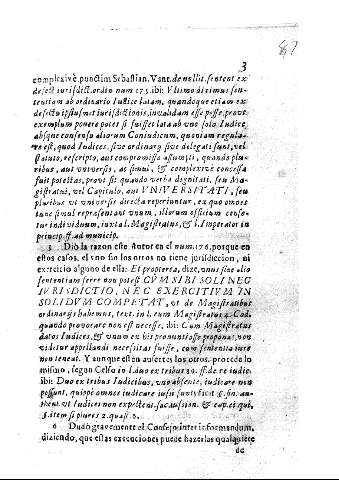 87
3
complexivè. punctim Sebastian. Vant. de nullit. sentent ex
defect. iurisdict. ordin num 175. ibi: Vltimo diximus sen-
tentiam ab ordinario Iudice latam, quandoque etiam ex
defectu ipsiusmet iurisdictionis, invalidam esse posse, prout
exemplum ponere potes si fuisset lata ab vno solo Iudice,
absque consensu aliorum Coniudicum, quoniam regula-
re est, quod Iudices, sive ordinarij sive delegati sunt, vel
statuto, rescripto, aut compromisso assumpti, quando plu-
ribus, aut vniversis, ac simul, & complexivè concessa
fuit potestas, prout sit quando verba dignitati, seu Ma-
gistratui, vel Capitulo, aut VNIVERSITATI, seu
pluribus vt vniversis directa reperiuntur, ex quo omnes
tunc simul representant vnum, illorum officium conse-
tur individuum, iuxta l. Magistratus, & l. Imperator in
princip. ff. ad municip.
5 Diò la razon este Autor en el num. 176. porque en
estos casos, el vno sin los otros no tiene jurisdiccion, ni
exercicio alguno de ella: Et propterea, dize, vnus sine alio
sententiam ferre non potest CVM SIBI SOLI NEC
IVRISDICTIO, NEC EXERCITIVM IN
SOLIDVM COMPETAT, vt de Magistratibus
ordinarijs habemus, text. in l. cum Magistratus 2. Cod.
quando provocare non est necesse, ibi: Cum Magistratus
datos Iudices, & vnum ex his pronuntiasse proponas, non
videtur appellandi necessitas fuisse, cum sententia iure
non teneat. Y aunque estèn ausentes los otros, procede lo
mismo, segun Celso in l. duo ex tribus 39. ff. de re iudic.
ibi: Duo ex tribus Iudicibus, vno absente, iudicare non
possunt, quippè omnes iudicare iussi sunt
6 Dudò gravemente el Consejo inter informandum,
diziendo, que estas execuciones puede hazerlas qualquiere
de